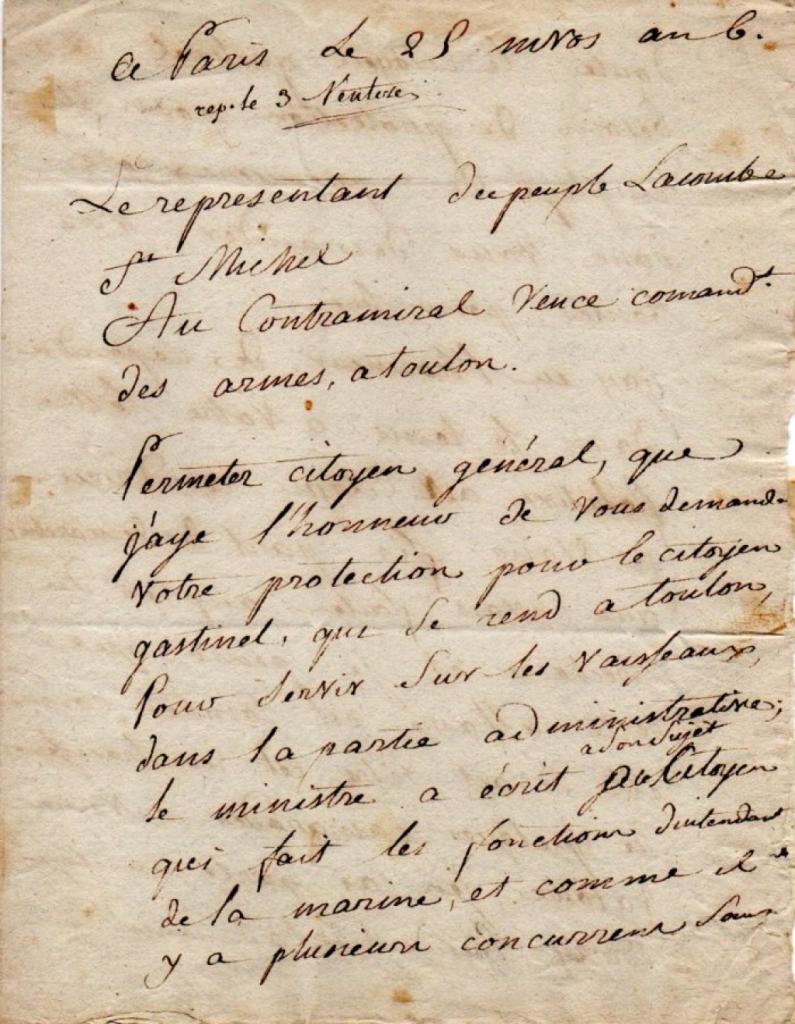 a Paris le 25 nivos an 6.
rep. le 3 Ventose
Le representant du peuple Lacombe
St Michel
Au Contramiral Vence comandt
des armes, a toulon.
Permeter citoyen général, que
j'aye l'honneur de vous demande
votre protection pour le citoyen
gastinel, qui se rend a toulon,
pour servir sur les vaisseaux,
dans la partie administrative;
a son sujet
le ministre a écrit au Citoyen
qui fait les fonctions d'intendant
de la marine, et comme il
y a plusieurs concurrens sans